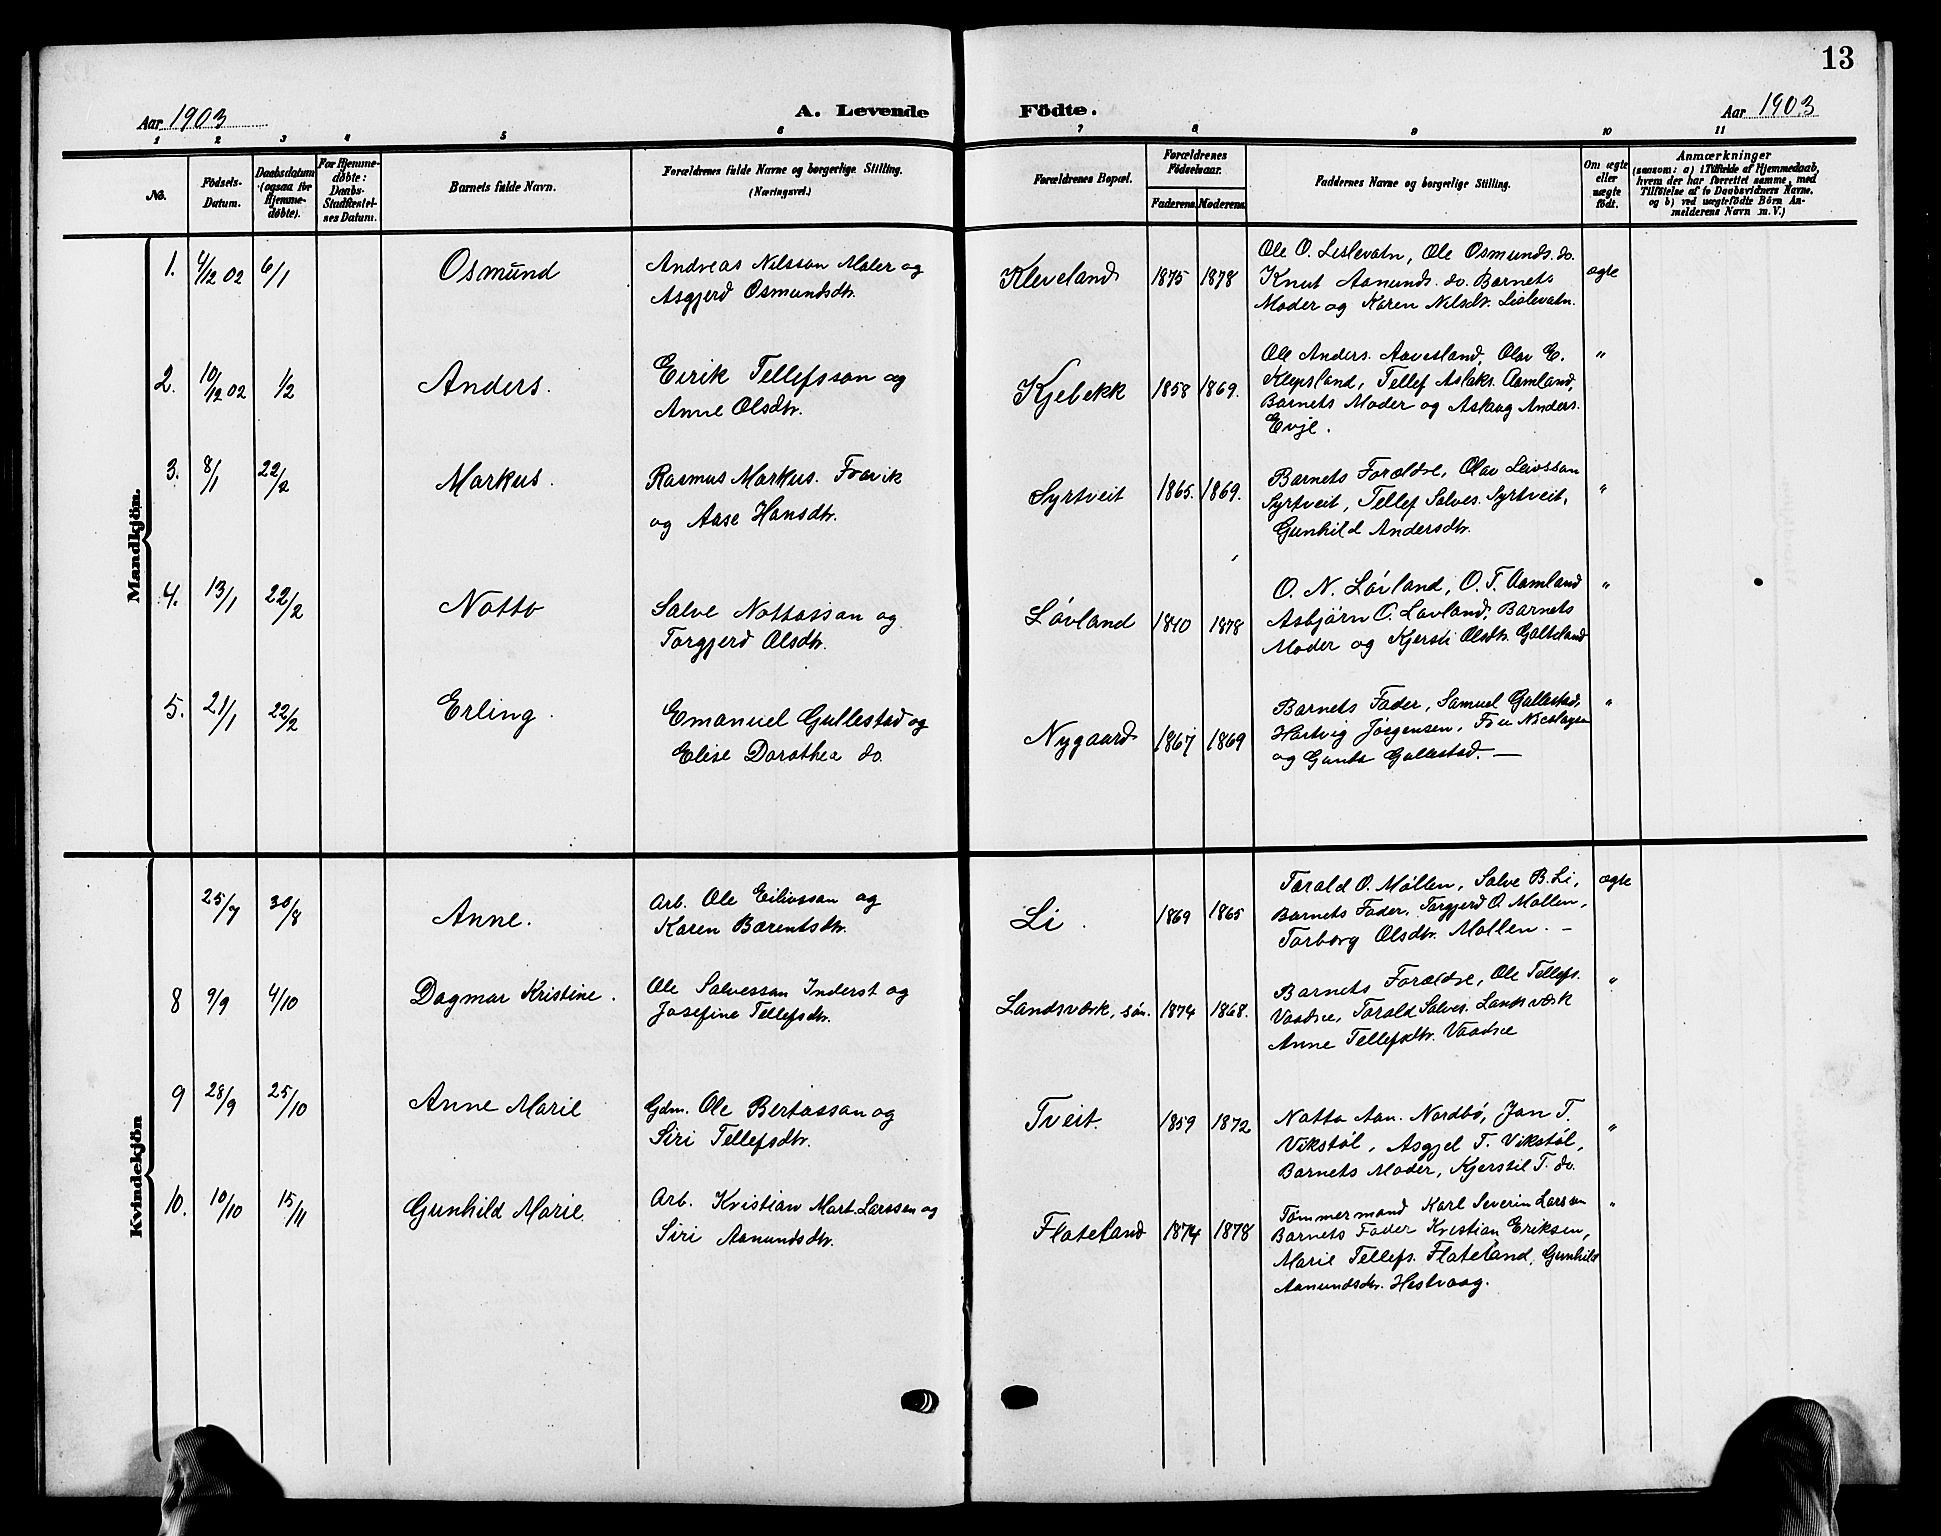 13
Aar 1903
A. Levende Födte.
Aar 1903
1 2 3 4 5 6 7 8 9 10 11
No.
Födsels-Datum.
Daabsdatum (ogsaa for Hjemme-døbte).
For Hjemme-døbte: Daabs-Stadfæstel-ses Datum.
Barnets fulde Navn.
Forældrenes fulde Navne og borgerlige Stilling.
(Næringsvei.)
Forældrenes Bopæl.
Forældrenes Födselsaar.
Faderens. Moderens.
Faddernes Navne og borgerlige Stilling.
Om ægte eller uægte født.
Anmærkninger
(saasom: a) i Tilfælde af Hjemmedaab,
hvem der har forrettet samme, med
Tilföielse af to Daabsvidners Navne,
og b) ved uægtefödte Börn An-
melderens Navn m. V.)
Mandkjön.
1. 4/12 02 6/1 Osmund
Andreas Nilsson Maler og
Asgjerd Osmundsdtr.
Kleveland 1875 1878
Ole O. Lislevatn, Ole Osmunds. do.
Knut Aanunds. do. Barnets
Moder og Karen Nilsdtr. Lislevatn.
ægte
2. 10/12 02 1/2 Anders.
Eirik Tellefsson og
Anne Olsdtr.
Kjebekk 1858 1869.
Ole Anders. Aavesland, Olav E.
Klepsland, Tellef Aslaks. Aamland,
Barnets Moder og Aslaug Anders.
Evje.
"
3. 8/1 22/2 Markus.
Rasmus Markus. Fravik
og Aase Hansdtr.
Syrtveit 1865. 1869.
Barnets Forældre, Olav Leivsson
Syrtveit, Tellef Salves. Syrtveit,
Gunhild Andersdtr.
"
4. 13/1 22/2 Notto
Salve Nottosson og
Torgjerd Olsdtr.
Løvland 1840 1878
O. N. Løvland, O. T. Aamland
Asbjørn O. Løvland, Barnets
Moder og Kjersti Olsdtr. Galteland
"
5. 21/1 22/2 Erling.
Emanuel Gullestad og
Elise Dorothea do.
Nygaard 1867 1869
Barnets Fader, Samuel Gullestad,
Hartvig Jørgensen, Fru Nicolaysen
og Gullestad. —
"
Kvindekjön
25/7 30/8 Anne.
Arb. Ole Eilivsson og
Karen Barentsdtr.
Li. 1869 1865
Torald O. Møllen, Salve B. Li,
Barnets Fader, Torgjerd O. Møllen,
Torborg Olsdtr. Møllen. —
ægte
8 9/9 4/10 Dagmar Kristine.
Ole Salvessan Inderst og
Josefine Tellefsdtr.
Landsværk, søn. 1874 1868.
Barnets Forældre, Ole Tellefs.
Torald Salves. Landsværk
Anne Tellefsdtr.
"
9 28/9 25/10 Anne Marie
Gdm. Ole Bertossan og
Siri Tellefsdtr.
Tveit. 1859 1872
Notto Aan. Nordbø, Jon T.
Vikstøl, Asgjel T. Vikstøl,
Barnets Moder, Kjerstil T. do.
"
10. 10/10 15/11 Gunhild Marie
Arb. Kristian Mart. Larssen og
Siri Aanundsdtr.
Flateland 1874 1878
Tømmermand Karl Severin Larssen
Barnets Fader Kristian Eriksen,
Marie Tellefs. Flateland, Gunhild
Aanundsdtr. Hestvaag.
"